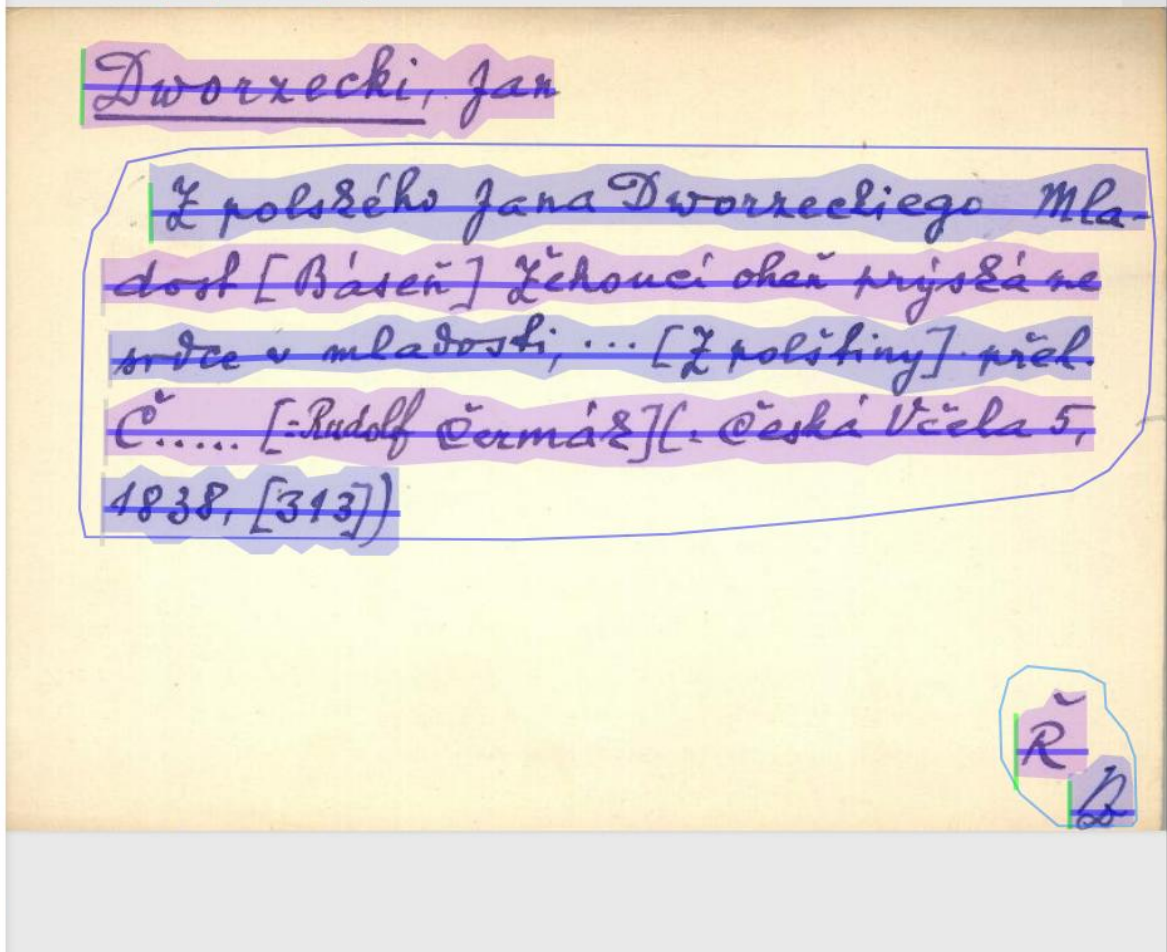 Dworzecki, Jan
Z polského Jana Dworzeckiego Mla-
dost [Báseň] Žéhoucí oheň prýská ne
srdce v mladosti, ... [Z polštiny] přel.
Č..... [=Rudolf Čermák](: Česká Včela 5,
1838, [313])
Ř